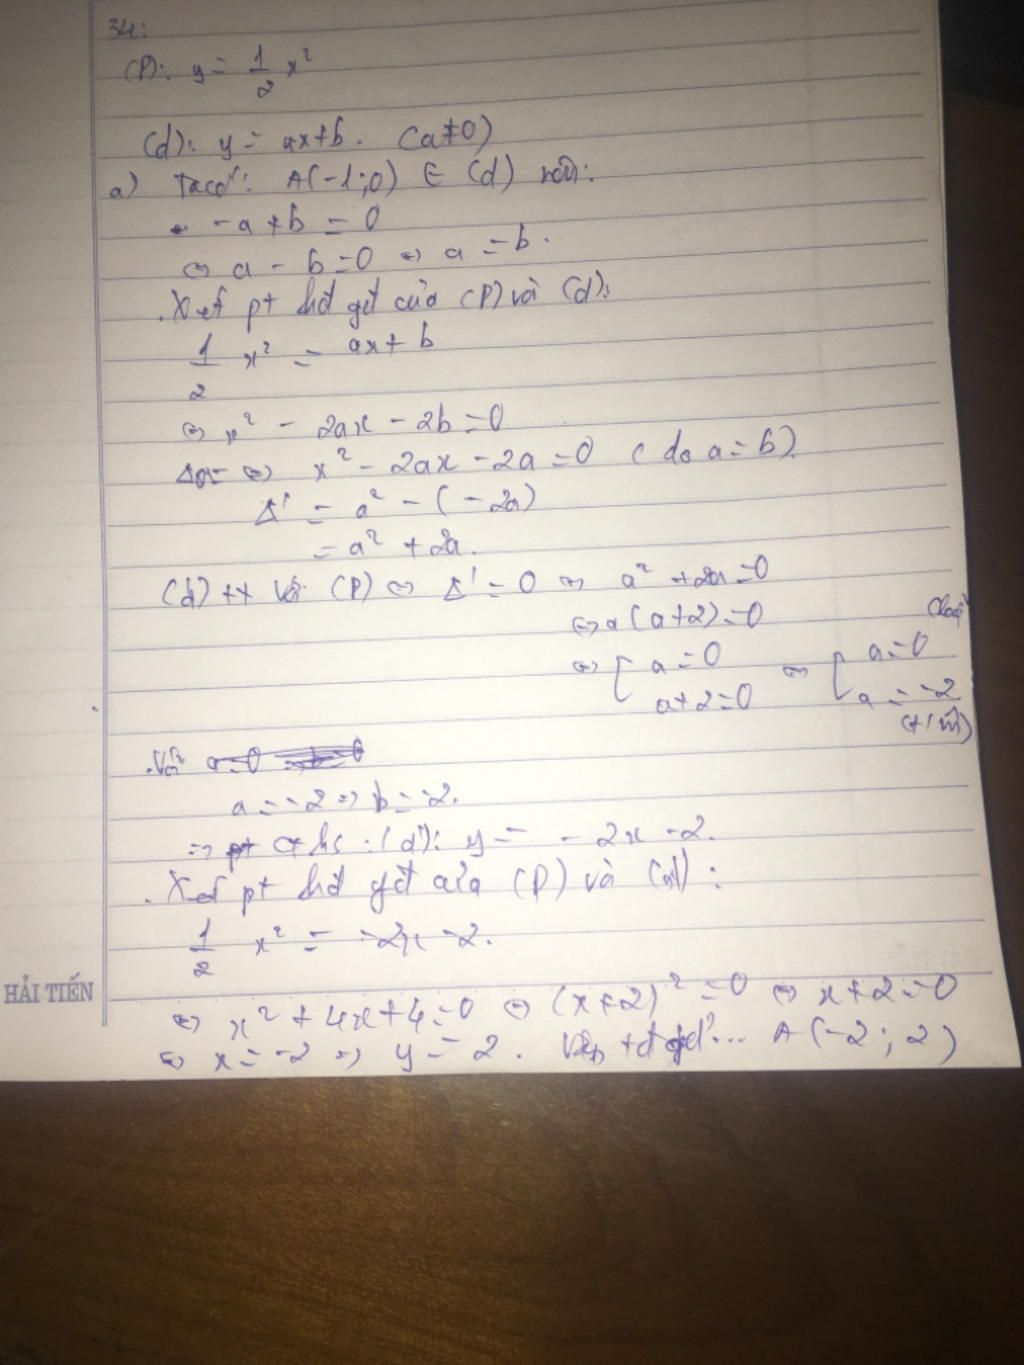 34:
(P): y = 1/2 x²
(d): y = ax+b. (a≠0)
a) Ta có: A(-1;0) ∈ (d) nên:
-a+b = 0
⇔ a - b=0 ⇔ a = b.
. Xét pt hđ gđ của (P) và (d):
1/2 x² = ax+b
⇔ x² - 2ax - 2b=0
⇔ x² - 2ax - 2a=0 (do a=b)
Δ' = a² - (-2a)
= a² + 2a.
(d) tx với (P) ⇔ Δ' = 0 ⇔ a² + 2a=0
⇔ a(a+2)=0
⇔ [ a=0 ⇔ [ a=0 (loại)
a+2=0 a=-2 (t/m)
. Với a=0 b=0
a=-2 => b=-2.
=> hs (d): y = -2x-2.
. Xét pt hđ gđ của (P) và (d):
1/2 x² = -2x-2.
HẢI TIẾN
⇔ x²+4x+4=0 ⇔ (x+2)²=0 ⇔ x+2=0
⇔ x=-2 => y=2. Vậy tđ gđ... A(-2;2)